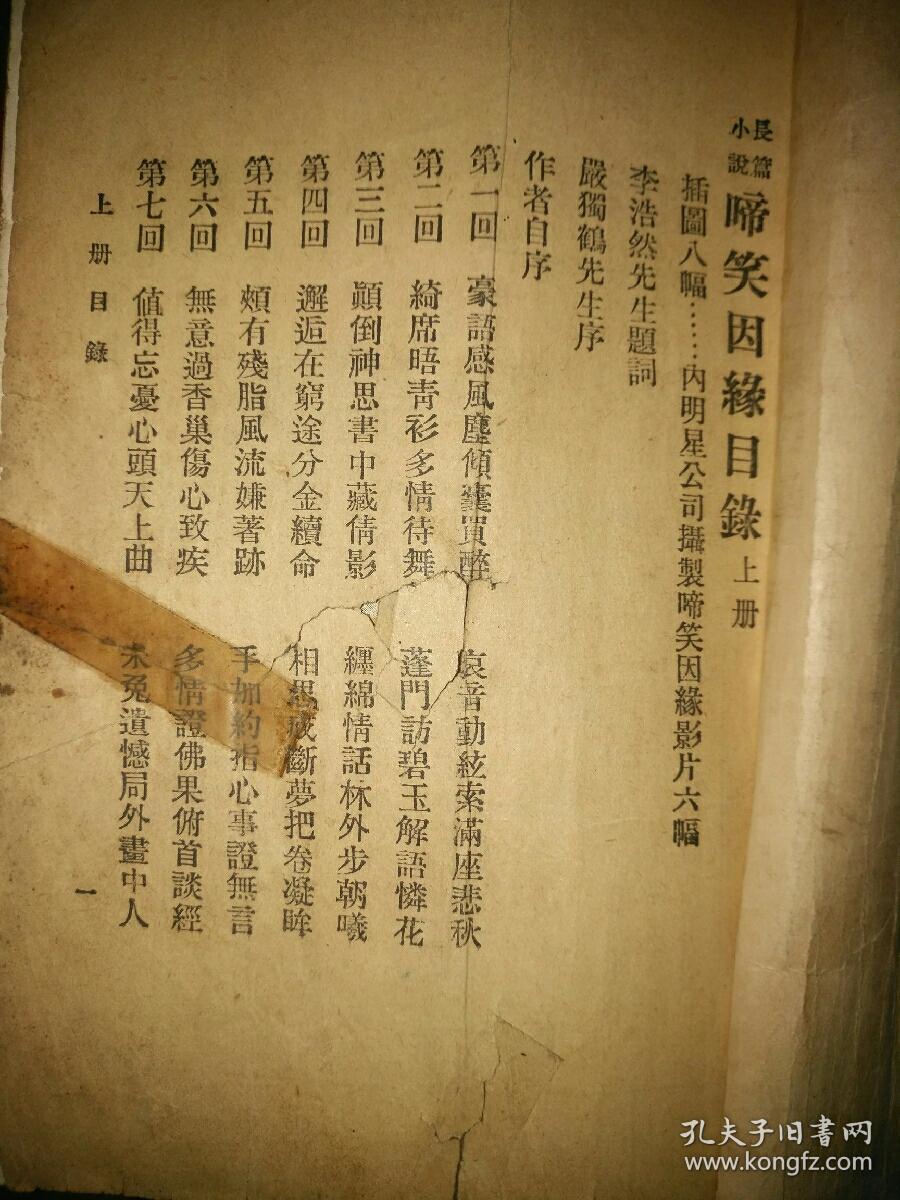 長篇小說 啼笑因緣目錄 上册
插圖八幅……內明星公司攝製啼笑因緣影片六幅
李浩然先生題詞
嚴獨鶴先生序
作者自序
第一回 豪語感風塵傾囊買醉 哀音動絃索滿座悲秋
第二回 綺席晤青衫多情待舞 蓬門訪碧玉解語憐花
第三回 顚倒神思書中藏倩影 纏綿情話林外步朝曦
第四回 邂逅在窮途分金續命 相思成斷夢把卷凝眸
第五回 頰有殘脂風流嫌著跡 手加約指心事證無言
第六回 無意過香巢傷心致疾 多情證佛果俯首談經
第七回 値得忘憂心頭天上曲 未免遺憾局外畫中人
上册目錄
一
孔夫子旧书网
www.kongfz.com